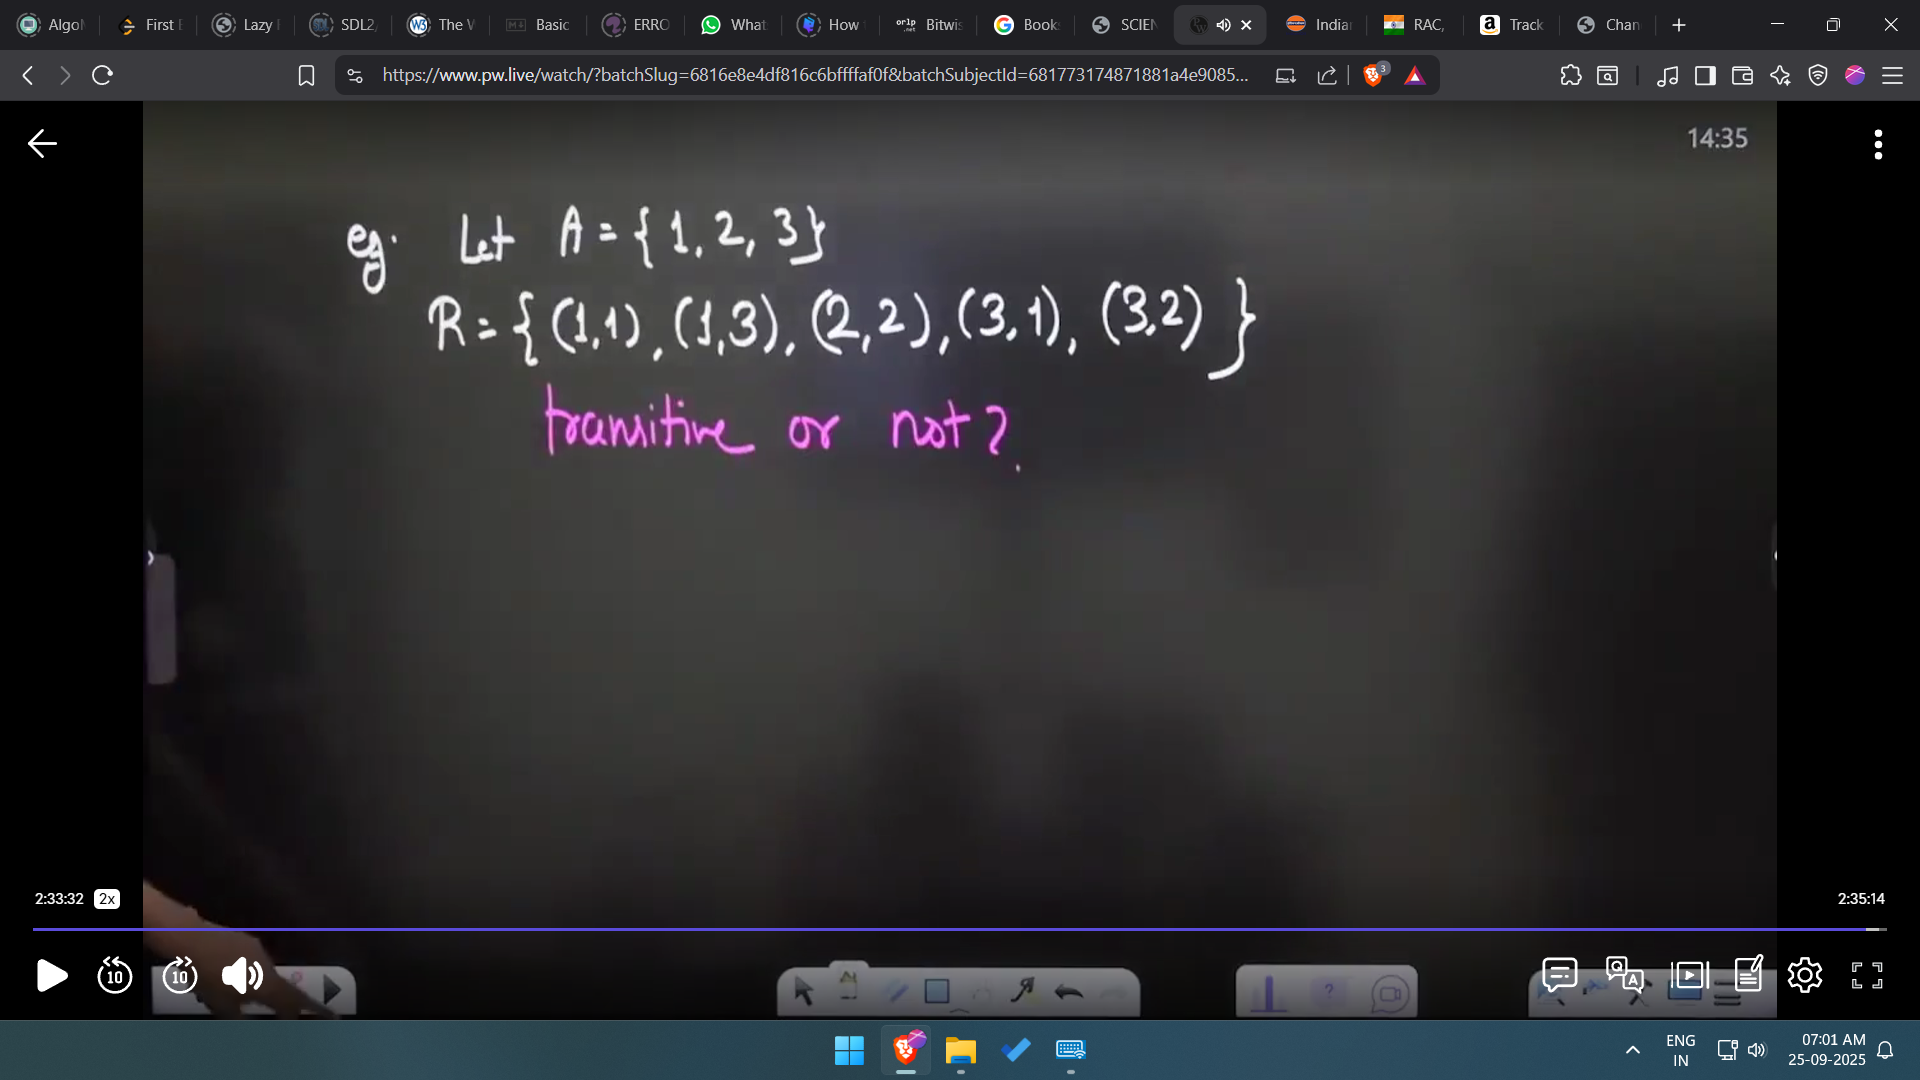 Algo
First
Lazy
SDL2,
The W
Basic
ERRO
What
How
orlp
.net
Bitwis
Book
SCIEN
India
RAC,
Track
Chan
https://www.pw.live/watch/?batchSlug=6816e8e4df816c6bffffaf0f&batchSubjectId=681773174871881a4e9085...
3
14:35
eg. Let A = { 1, 2, 3}
R = { (1,1), (1,3), (2,2), (3,1), (3,2) }
transitive or not?
2:33:32 2x
2:35:14
10
10
ENG
IN
07:01 AM
25-09-2025